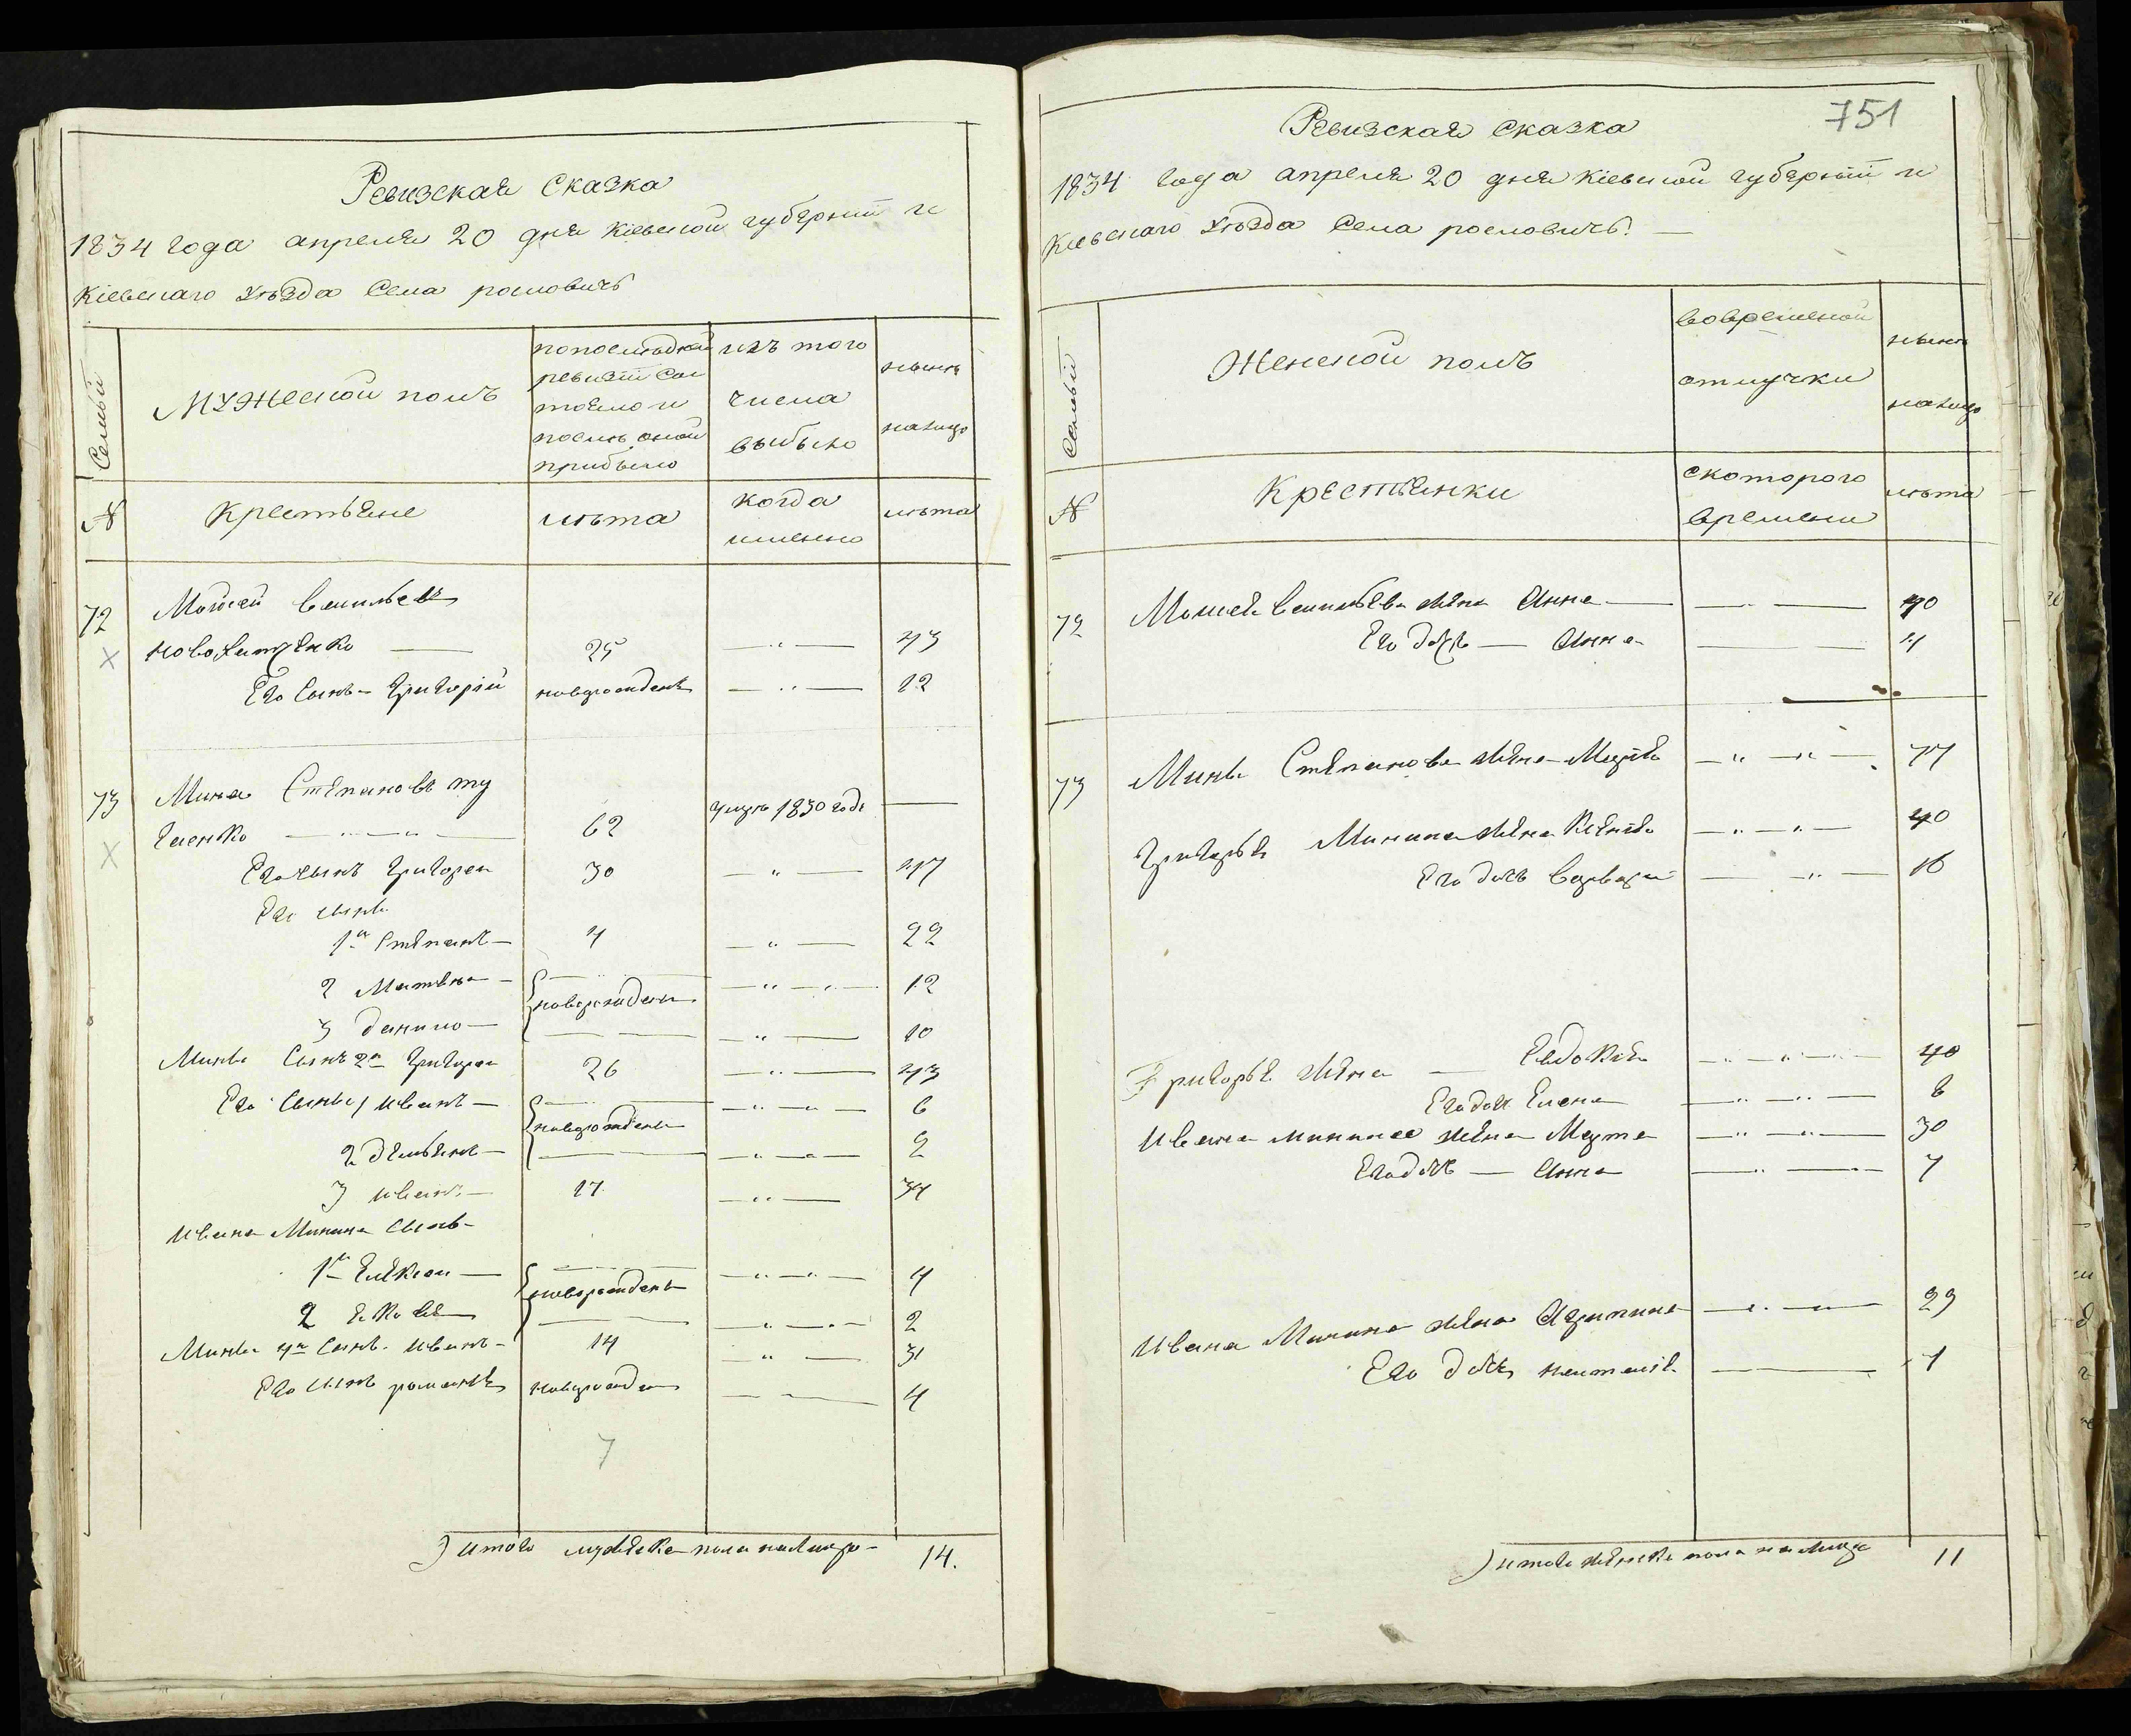 Ревизская Сказка
1834 года апреля 20 дня Кіевской губерніи и
Кіевскаго Уѣзда Села рословичь
Семьи
Мужеской полъ
попоследней ревизіи состояло и послѣ оной прибыло
изъ того числа выбыло
нынѣ налицо
№
Крестьяне
лѣта
когда именно
лѣта
72 Мойсей Васильевъ
Новохатченко 25 43
Его Сынъ Григорій новорожденъ 12
73 Мина Степановъ
62 умре 1830 года
Его сынъ Григорей 30 47
Его сынь
1й Степанъ 4 22
2 Матвѣй 12
новорожденн
3 данило 10
Мины Сынъ 2й Григорей 26 43
Его Сыны 1 иванъ 6
новорожденн
2 демьянъ 2
3 иванъ 17 34
ивана Минина Сынъ
1й Елекъсей 4
новорожденн
2 Яковъ 2
Мины 4й Сынъ иванъ 14 31
Его сынъ романъ новорожден 4
7
итого мужеска пола налицо 14.
751
Ревизская Сказка
1834 года апреля 20 дня Кіевской губерніи и
Кіевскаго Уѣзда Села рословичь.
Семьи
Женской полъ
вовременной отлучки
нынѣ налицо
№
Крестьянки
скоторого времени
лѣта
72 Мойсея Васильева жена Анна 40
Его дочь Анна 4
73 Мины Степанова жена Марія 77
Григорья Минина жена Ксенія 40
Его дочь варвара 16
Григорья жена Евдокія 40
Его доч Елена 6
ивана минина жена Марта 30
Его дочь Анна 7
Ивана Минина жена Агрипина 29
Его дочь настасія 1
итого женска пола налицо 11